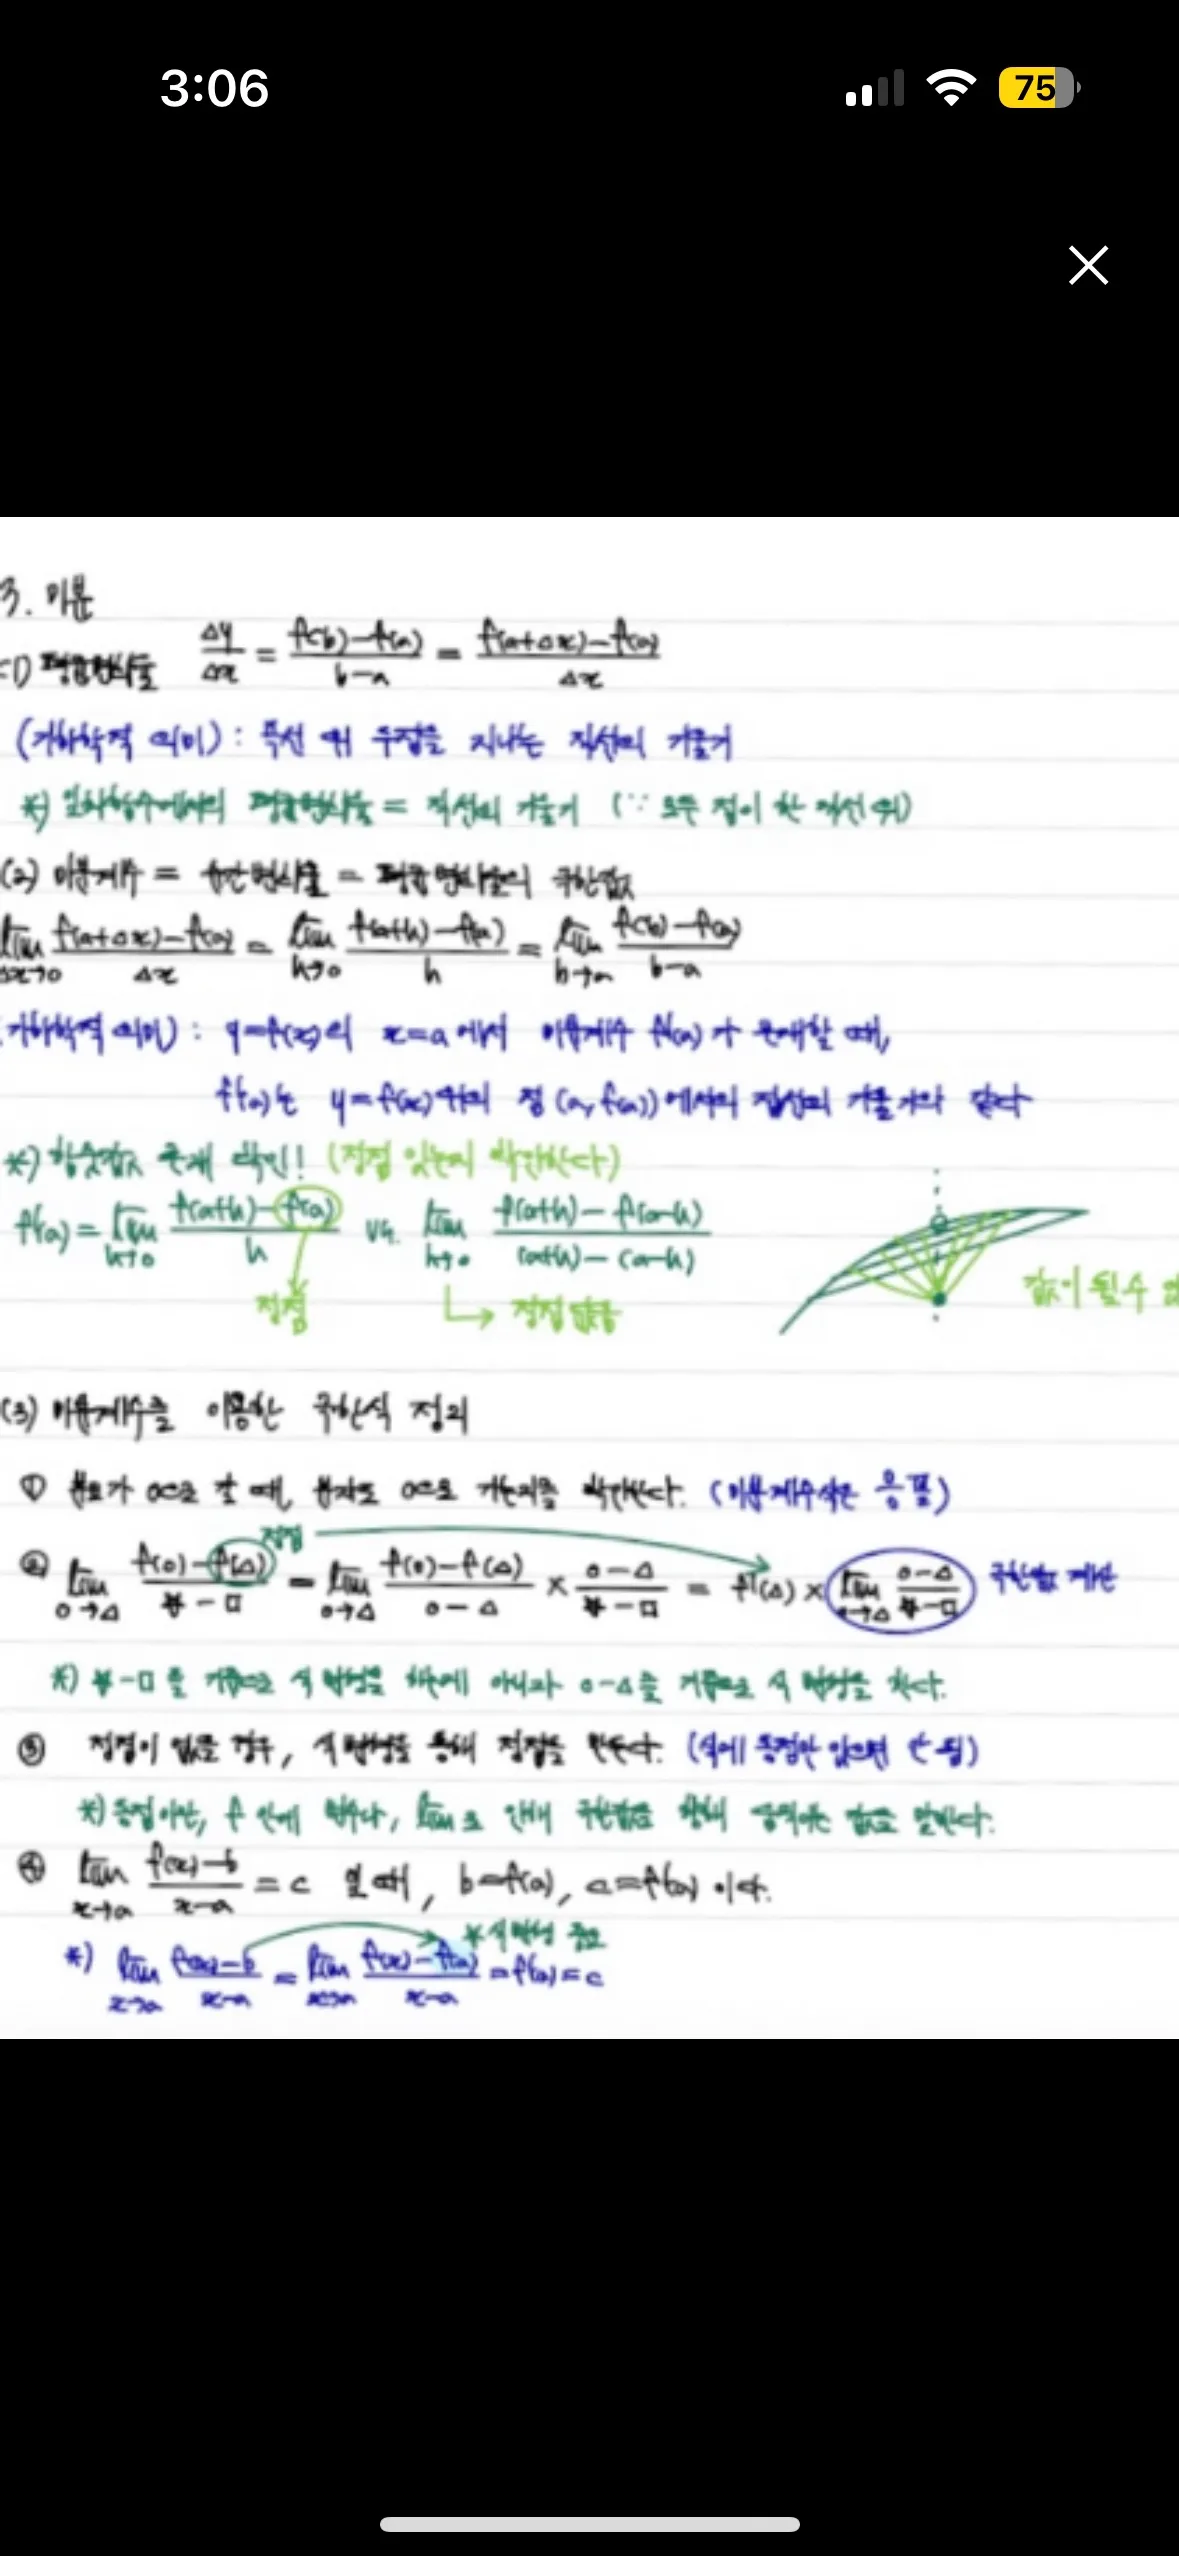 3:06
75
3. 미분
(1) 평균변화율 Δy/Δx = f(b)-f(a)/b-a = f(a+Δx)-f(a)/Δx
(기하학적 의미) : 곡선 위 두점을 지나는 직선의 기울기
*) 일차함수에서의 평균변화율 = 직선의 기울기 (∵ 모든 점이 한 직선 위)
(2) 미분계수 = 순간변화율 = 평균변화율의 극한값
lim Δx→0 f(a+Δx)-f(a)/Δx = lim h→0 f(a+h)-f(a)/h = lim b→a f(b)-f(a)/b-a
(기하학적 의미) : y=f(x)의 x=a에서 미분계수 f'(a)가 존재할 때,
f'(a)는 y=f(x)위의 점 (a, f(a))에서의 접선의 기울기와 같다
*) 함숫값 존재 확인! (정점 있는지 확인한다)
f'(a) = lim h→0 f(a+h)-f(a)/h vs. lim h→0 f(a+h)-f(a-h)/(a+h)-(a-h)
정점
↳ 정점 없음
값이 될수
(3) 미분계수를 이용한 극한식 정의
① 분모가 0으로 갈 때, 분자도 0으로 가는지를 확인한다. (미분계수식은 0/0꼴)
정점
② lim ○→△ f(○)-f(△)/☆-□ = lim ○→△ f(○)-f(△)/○-△ × ○-△/☆-□ = f'(△) × lim ○→△ ○-△/☆-□ 극한값 계산
*) ☆-□를 기준으로 식 변형을 하는게 아니라 ○-△를 기준으로 식 변형을 한다.
③ 정점이 없을 경우, 식 변형을 통해 정점을 만든다. (식에 동점만 있으면 안 됨)
*) 동점이란, f 안에 변수나, lim로 인해 극한값을 향해 움직이는 값을 말한다.
④ lim x→a f(x)-b/x-a = c 일 때, b=f(a), c=f'(a) 이다.
*식변형 중요
*) lim x→a f(x)-b/x-a = lim x→a f(x)-f(a)/x-a = f'(a) = c